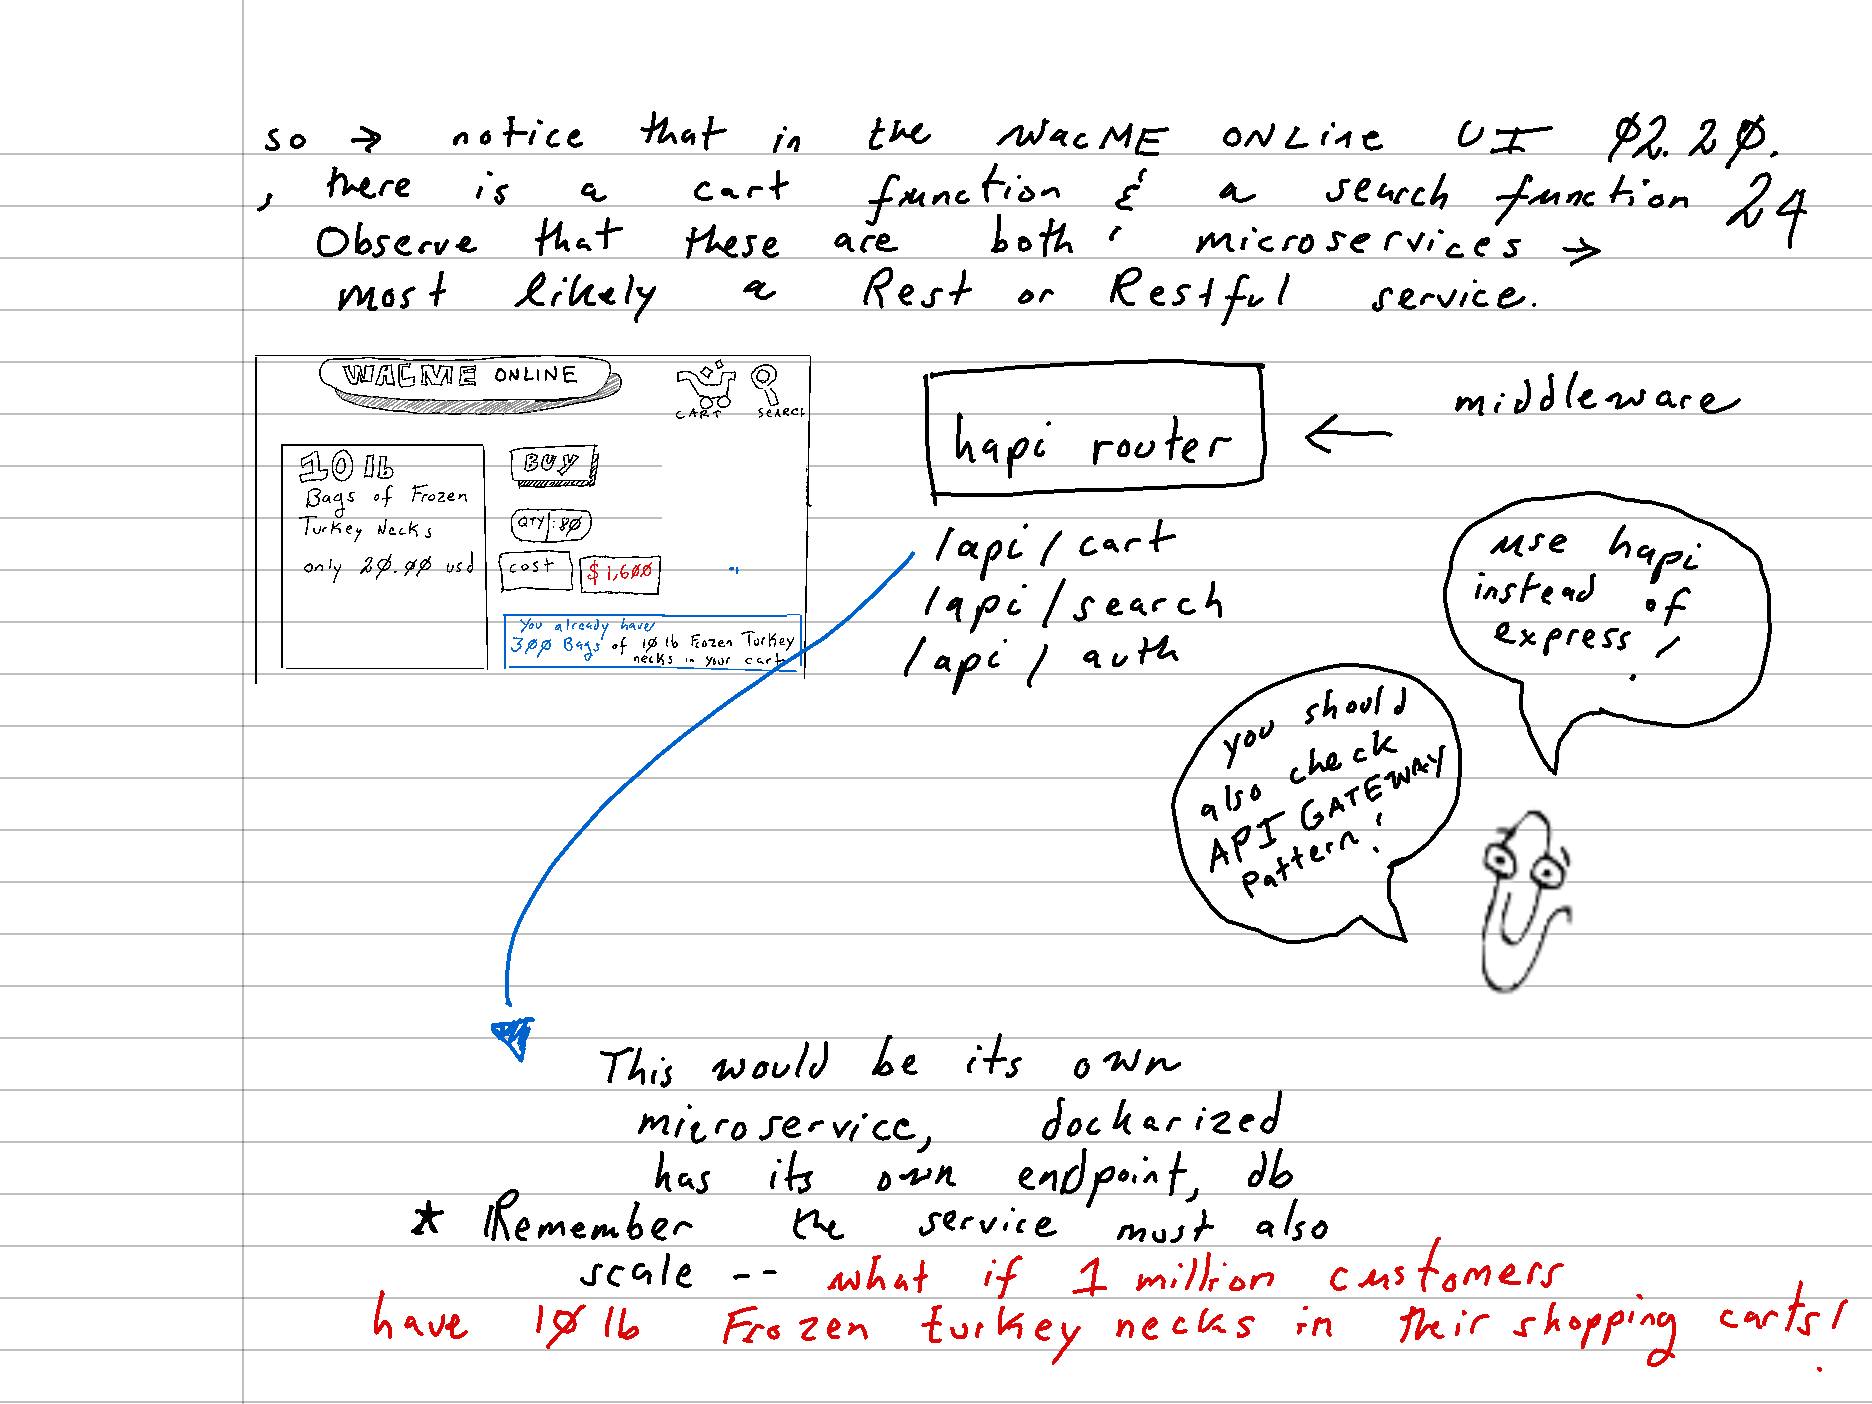 so → notice that in the WACME ONLine UI 02.20.
, there is a cart function & a search function 24
Observe that these are both ' microservices →
most likely a Rest or Restful service.
WACME ONLINE
CART SEARCH
10 lb
Bags of Frozen
Turkey Necks
only 20.00 usd
BUY
QTY: 80
cost $1,600
You already have
300 Bags of 10 lb Frozen Turkey
necks in your cart
hapi router
← middleware
/api/cart
/api/search
/api/auth
use hapi
instead of
express!
you should
also check
API GATEWAY
pattern!
This would be its own
microservice, dockarized
has its own endpoint, db
* Remember the service must also
scale -- what if 1 million customers
have 10 lb Frozen turkey necks in their shopping carts!